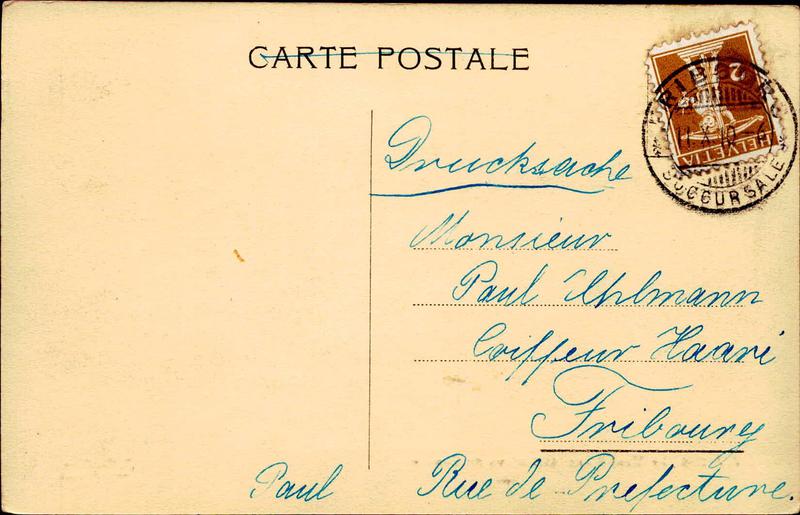 CARTE POSTALE
2
HELVETIA
11.X.10-6
SUCCURSALE
Drucksache
Monsieur
Paul Uhlmann
Coiffeur Haari
Fribourg
Rue de Préfecture.
Paul